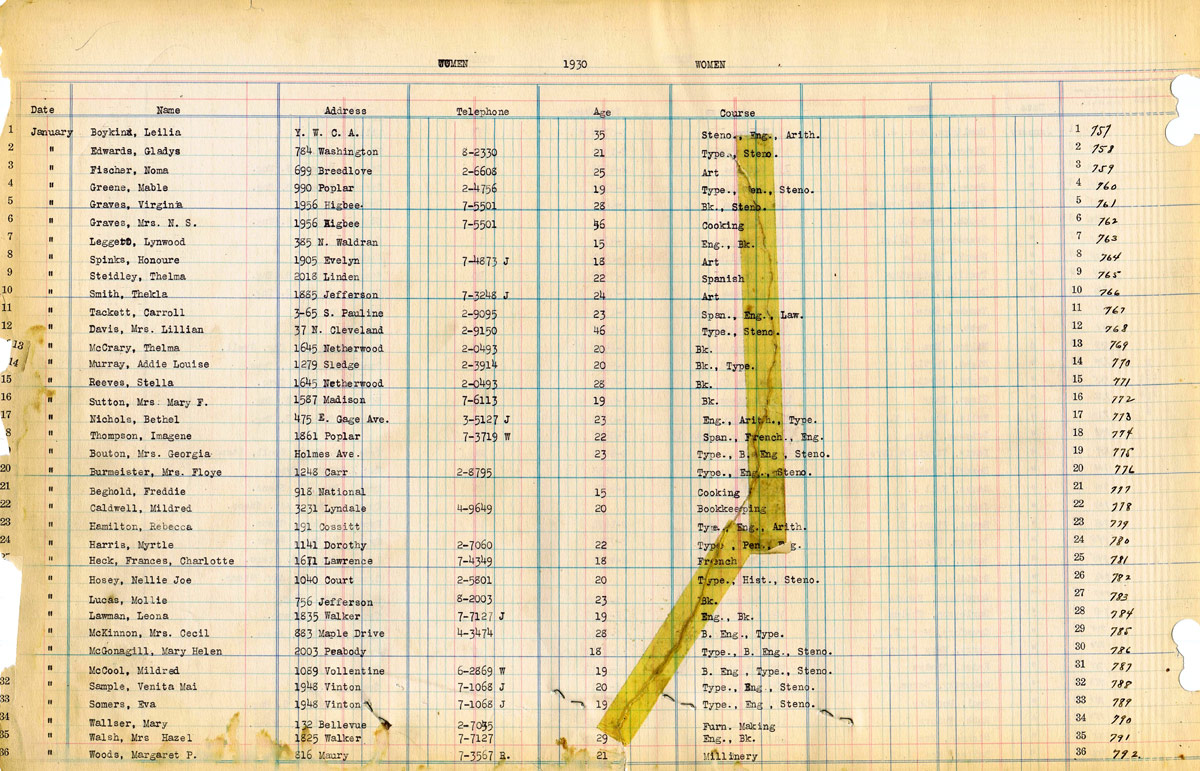 WOMEN 1930 WOMEN
Date Name Address Telephone Age Course
1 January Boykins, Leilia Y. W. C. A. 35 Steno., Eng., Arith. 1 757
2 " Edwards, Gladys 784 Washington 8-2330 21 Type., Steno. 2 758
3 " Fischer, Noma 699 Breedlove 2-6608 25 Art 3 759
4 " Greene, Mable 990 Poplar 2-4756 19 Type., Pen., Steno. 4 760
5 " Graves, Virginia 1956 Higbee 7-5501 28 Bk., Steno. 5 761
6 " Graves, Mrs. N. S. 1956 Higbee 7-5501 Cooking 6 762
7 " Leggett, Lynwood 385 N. Waldran 15 Eng., Bk. 7 763
8 " Spinks, Honoure 1905 Evelyn 7-4873 J 18 Art 8 764
9 " Steidley, Thelma 2018 Linden 22 Spanish 9 765
10 " Smith, Thekla 1885 Jefferson 7-3248 J 24 Art 10 766
11 " Tackett, Carroll 3-65 S. Pauline 2-9095 23 Span., Eng., Law. 11 767
12 " Davis, Mrs. Lillian 37 N. Cleveland 2-9150 46 Type., Steno. 12 768
13 " McCrary, Thelma 1645 Netherwood 2-0493 20 Bk. 13 769
14 " Murray, Addie Louise 1279 Sledge 2-3914 20 Bk., Type. 14 770
15 " Reeves, Stella 1645 Netherwood 2-0493 28 Bk. 15 771
16 " Sutton, Mrs. Mary F. 1587 Madison 7-6113 19 Bk. 16 772
17 " Nichols, Bethel 475 E. Gage Ave. 3-5127 J 23 Eng., Arith., Type. 17 773
8 " Thompson, Imagene 1861 Poplar 7-3719 W 22 Span., French., Eng. 18 774
" Bouton, Mrs. Georgia Holmes Ave. 23 Type., B. Eng , Steno. 19 775
20 " Burmeister, Mrs. Floye 1248 Carr 2-8795 Type., Eng., Steno. 20 776
21 " Beghold, Freddie 918 National 15 Cooking 21 777
22 " Caldwell, Mildred 3231 Lyndale 4-9649 20 Bookkeeping 22 778
23 " Hamilton, Rebecca 191 Cossitt Type., Eng., Arith. 23 779
24 " Harris, Myrtle 1141 Dorothy 2-7060 22 Type , Pen., Eng. 24 780
" Heck, Frances, Charlotte 1671 Lawrence 7-4349 18 French 25 781
" Hosey, Nellie Joe 1040 Court 2-5801 20 Type., Hist., Steno. 26 782
" Lucas, Mollie 756 Jefferson 8-2003 23 Bk. 27 783
" Lawman, Leona 1835 Walker 7-7127 J 19 Eng., Bk. 28 784
" McKinnon, Mrs. Cecil 883 Maple Drive 4-3474 28 B. Eng., Type. 29 785
" McGonagill, Mary Helen 2003 Peabody 18 Type., B. Eng., Steno. 30 786
" McCool, Mildred 1089 Vollentine 6-2869 W 19 B. Eng , Type., Steno. 31 787
32 " Sample, Venita Mai 1948 Vinton 7-1068 J 20 Type., Eng , Steno. 32 788
33 " Somers, Eva 1948 Vinton 7-1068 J 19 Type., Eng , Steno. 33 789
34 " Wallser, Mary 132 Bellevue 2-7045 Furn. Making 34 790
35 " Walsh, Mrs Hazel 1825 Walker 7-7127 29 Eng., Bk. 35 791
36 " Woods, Margaret P. 816 Maury 7-3567 R. 21 Millinery 36 792